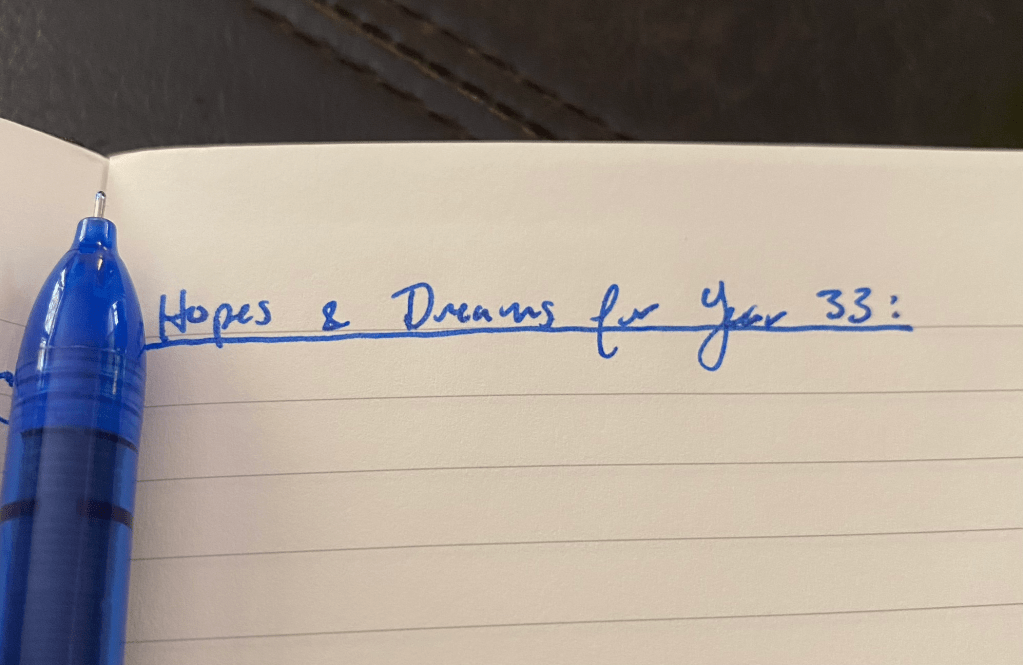 Hopes & Dreams for Year 33: